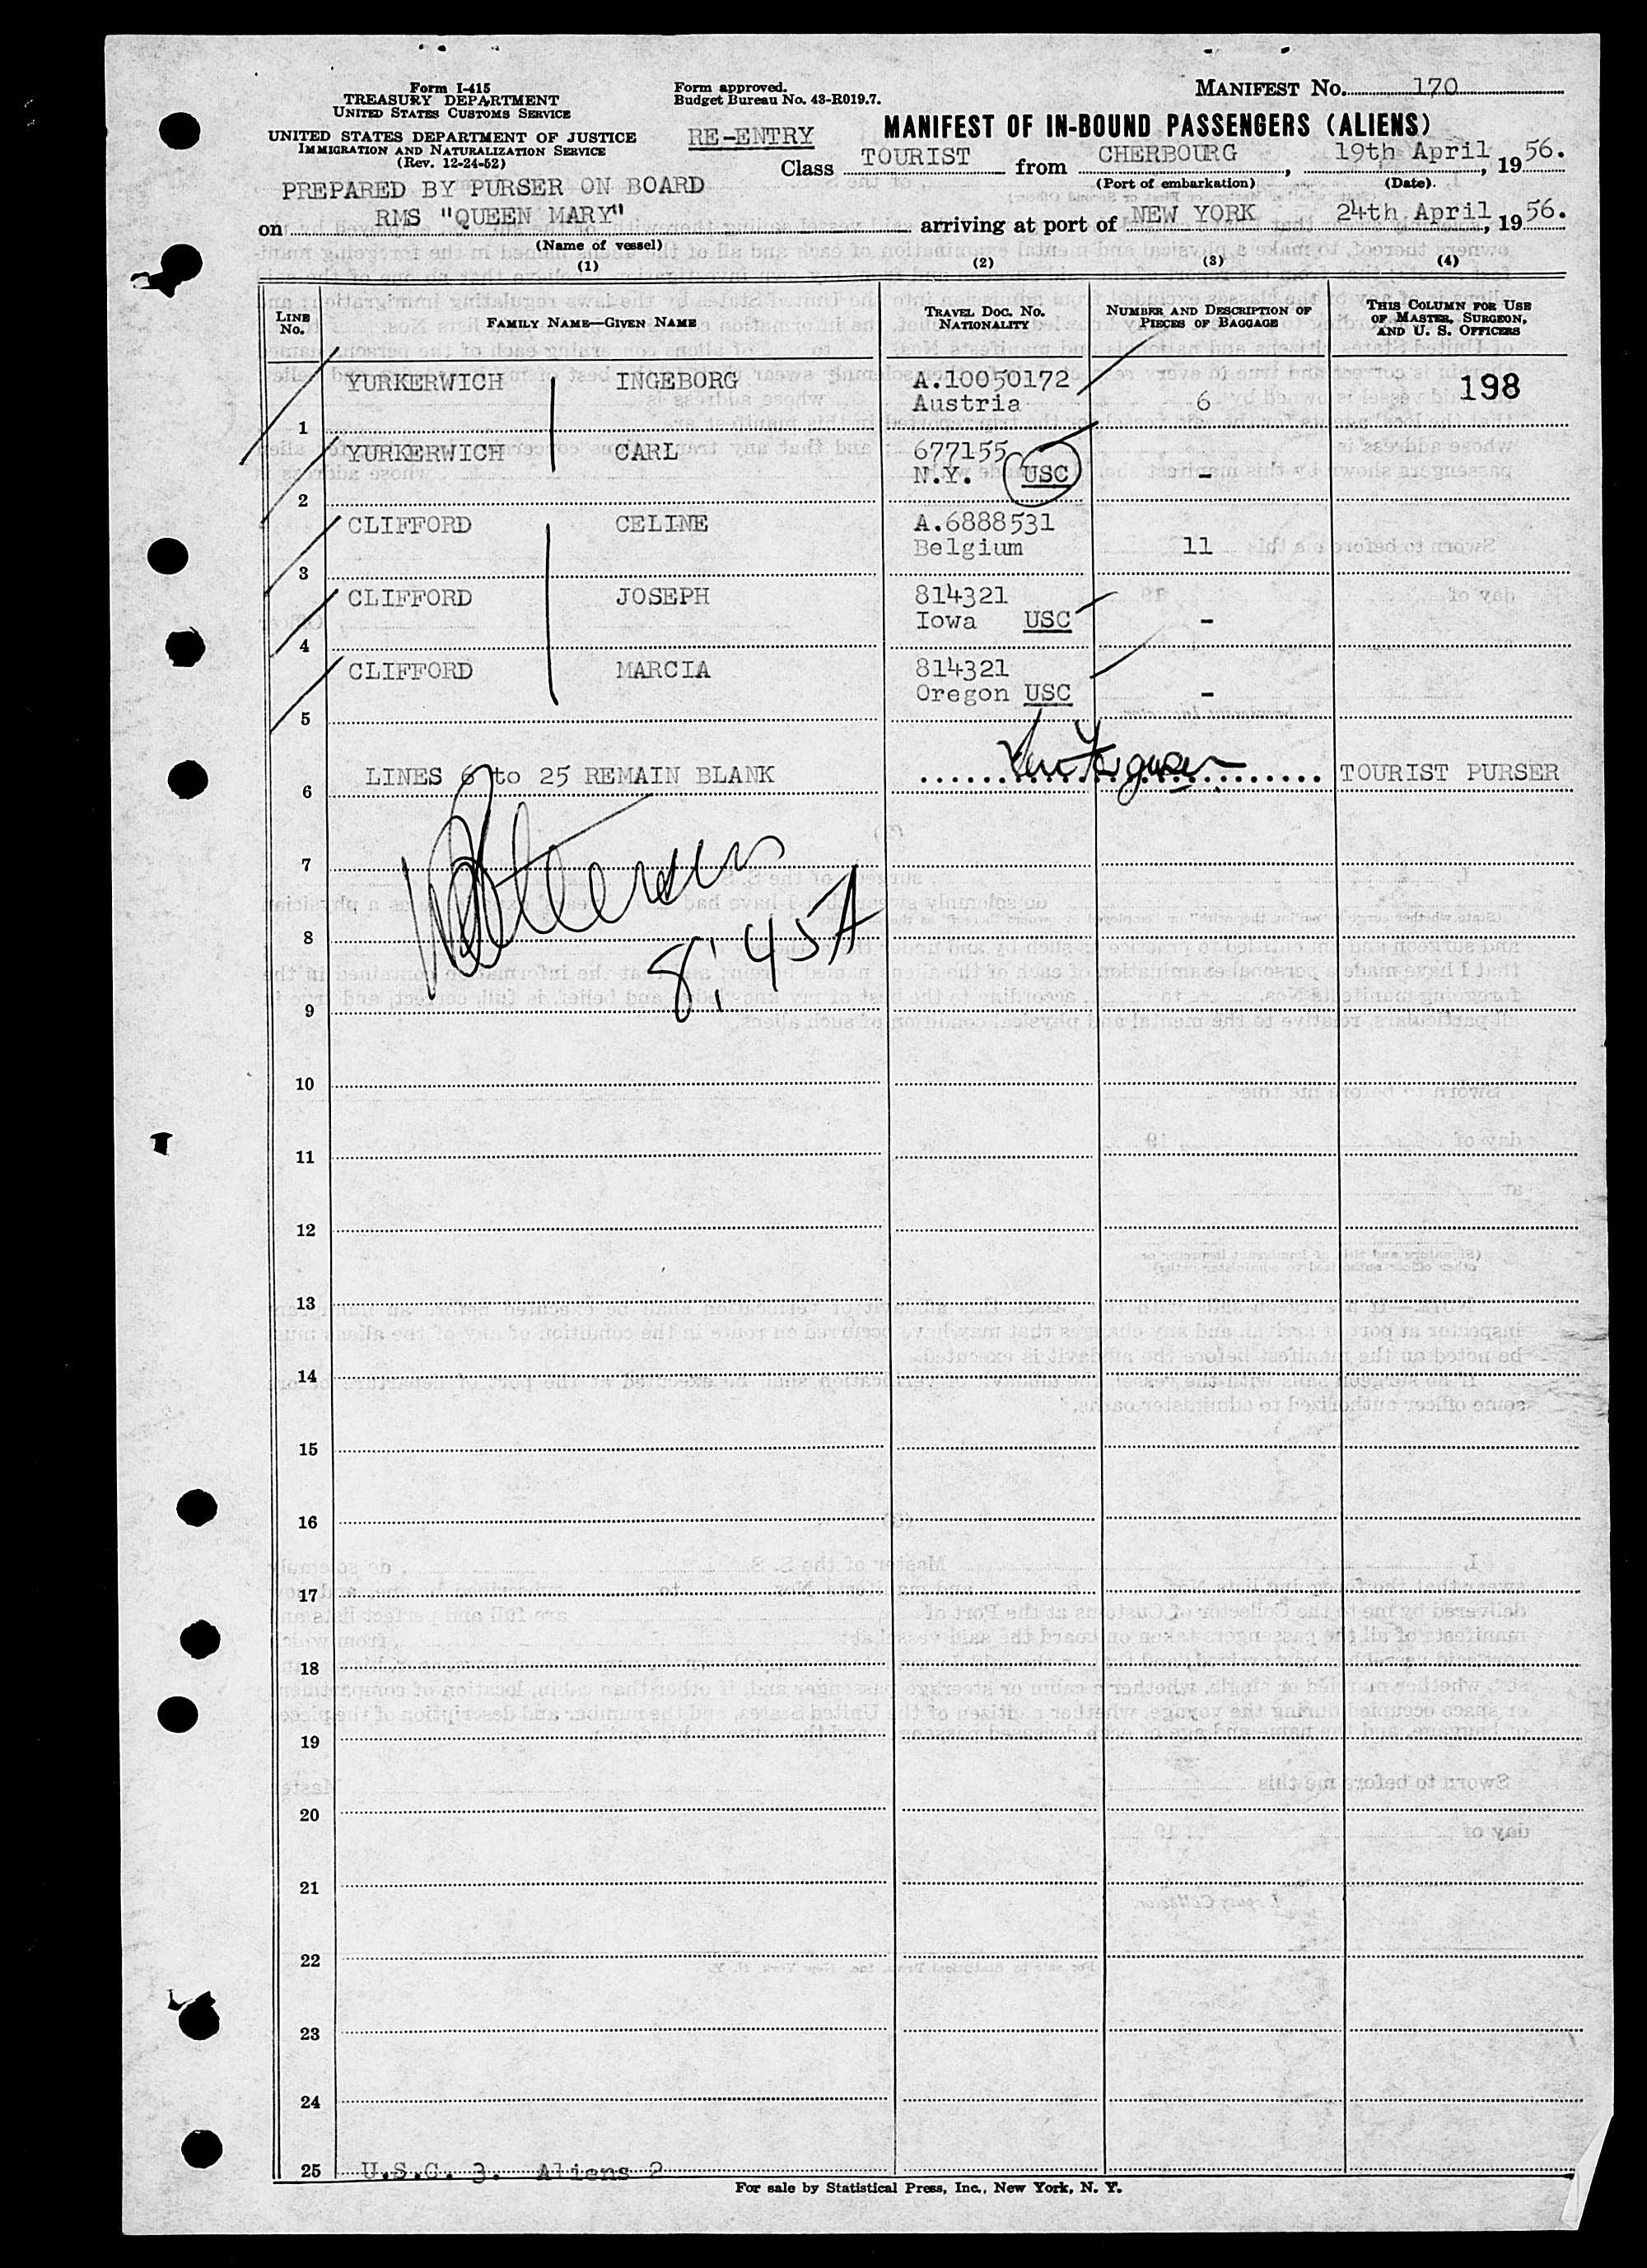 Form I-415
TREASURY DEPARTMENT
UNITED STATES CUSTOMS SERVICE
UNITED STATES DEPARTMENT OF JUSTICE
IMMIGRATION AND NATURALIZATION SERVICE
(Rev. 12-24-52)
Form approved.
Budget Bureau No. 43-R019.7.
MANIFEST No. 170
RE-ENTRY
MANIFEST OF IN-BOUND PASSENGERS (ALIENS)
Class TOURIST from CHERBOURG, 19th April, 1956.
(Port of embarkation) (Date).
PREPARED BY PURSER ON BOARD
on RMS "QUEEN MARY" arriving at port of NEW YORK 24th April, 1956.
(Name of vessel)
(1) (2) (3) (4)
LINE No. FAMILY NAME—GIVEN NAME TRAVEL DOC. NO. NATIONALITY NUMBER AND DESCRIPTION OF PIECES OF BAGGAGE THIS COLUMN FOR USE OF MASTER, SURGEON, AND U. S. OFFICERS
YURKERWICH INGEBORG A.10050172 198
1 Austria 6
YURKERWICH CARL 677155
2 N.Y. USC -
CLIFFORD CELINE A.6888531
3 Belgium 11
CLIFFORD JOSEPH 814321
4 Iowa USC -
CLIFFORD MARCIA 814321
5 Oregon USC -
6 LINES 6 to 25 REMAIN BLANK TOURIST PURSER
7
8 8:45A
9
10
11
12
13
14
15
16
17
18
19
20
21
22
23
24
25 U.S.C. 3. Aliens 2
For sale by Statistical Press, Inc., New York, N. Y.